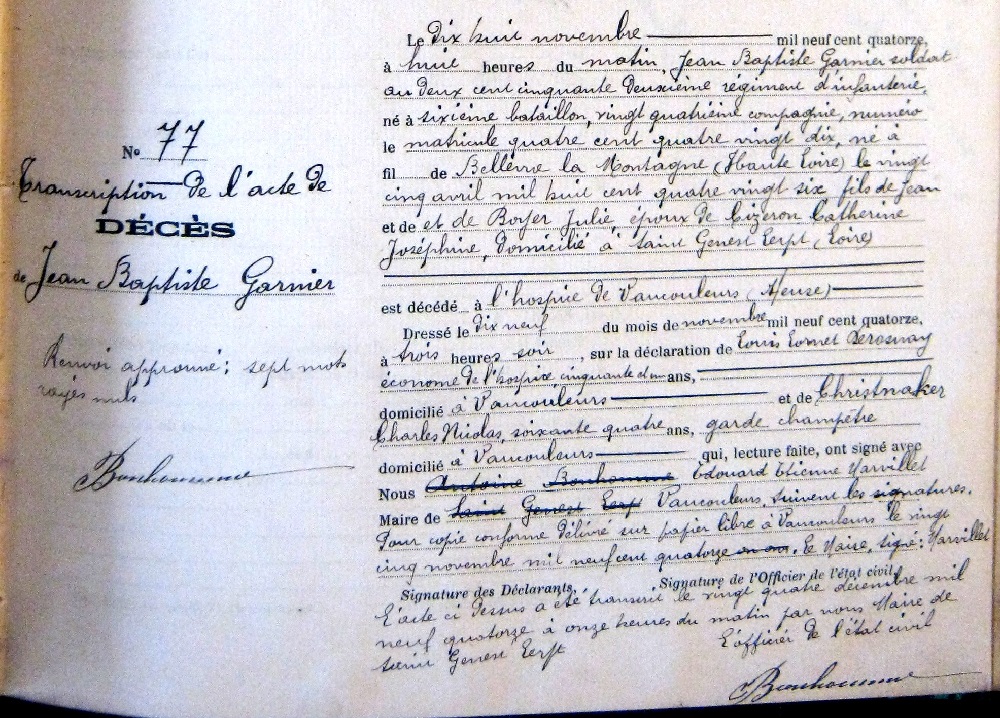 N° 77
Transcription de l'acte de
DÉCÈS
de Jean Baptiste Garnier
Renvoi approuvé; sept mots
rayés nuls
Bonhomme
Le dix huit novembre mil neuf cent quatorze,
à huit heures du matin, Jean Baptiste Garnier soldat
au deux cent cinquante deuxième régiment d'infanterie,
né à sixième bataillon, vingt quatrième compagnie, numéro
le matricule quatre cent quatre vingt dix, né à
fil de Bellevue la Montagne (Haute Loire) le vingt
cinq avril mil huit cent quatre vingt six fils de Jean
et de et de Boyer Julie, époux de Cizeron Catherine
Joséphine, domicilié à Saint Genest Lerpt (Loire)
est décédé à l'hospice de Vaucouleurs (Meuse)
Dressé le dix neuf du mois de novembre mil neuf cent quatorze,
à trois heures soir, sur la déclaration de Louis Cornet
économe de l'hospice, cinquante ans,
domicilié à Vaucouleurs et de Christnaker
Charles Nicolas, soixante quatre ans, garde champêtre
domicilié à Vaucouleurs qui, lecture faite, ont signé avec
Nous Antoine Bonhomme Edouard Etienne Marvillet
Maire de Saint Genest Lerpt Vaucouleurs, suivent les signatures.
Pour copie conforme délivré sur papier libre à Vaucouleurs le vingt
cinq novembre mil neuf cent quatorze. Le Maire, signé: Marvillet
Signature des Déclarants, Signature de l'Officier de l'état civil,
L'acte ci dessus a été transcrit le vingt quatre décembre mil
neuf quatorze à onze heures du matin par nous Maire de
Saint Genest Lerpt L'officier de l'état civil
Bonhomme